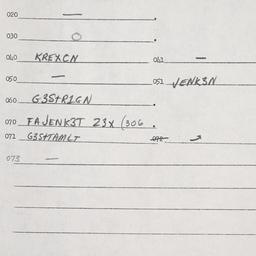 020 —
030 O
040 KREXCN 041 —
050 — 051 JENK3N
060 G3StR1GN
070 FAJENK3T 23X (306
071 G3StTAMLT 072
073 —